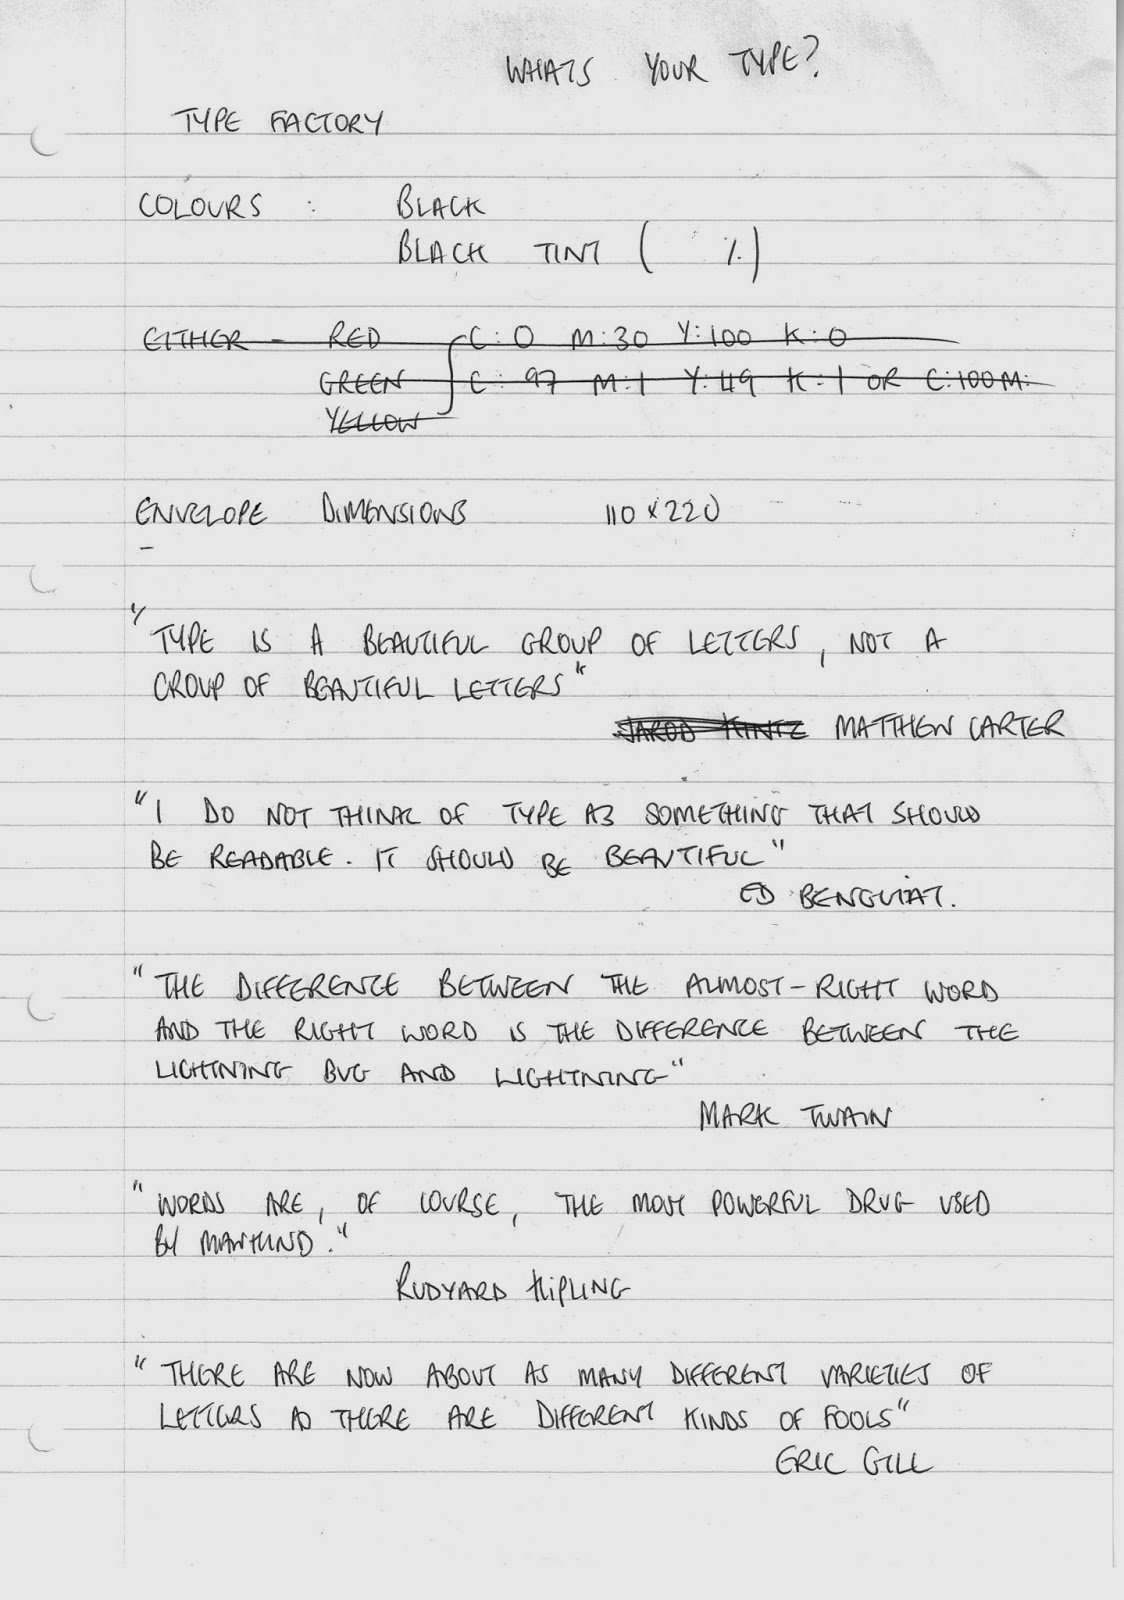 WHATS YOUR TYPE?
TYPE FACTORY
COLOURS : BLACK
BLACK TINT ( %)
EITHER - RED C:0 M:30 Y:100 K:0
GREEN C: 97 M:1 Y:49 K:1 OR C:100 M:
YELLOW
ENVELOPE DIMENSIONS 110 x 220
-
"TYPE IS A BEAUTIFUL GROUP OF LETTERS, NOT A
GROUP OF BEAUTIFUL LETTERS"
JAROD KINTZ MATTHEW CARTER
"I DO NOT THINK OF TYPE AS SOMETHING THAT SHOULD
BE READABLE. IT SHOULD BE BEAUTIFUL"
ED BENGUIAT.
"THE DIFFERENCE BETWEEN THE ALMOST-RIGHT WORD
AND THE RIGHT WORD IS THE DIFFERENCE BETWEEN THE
LIGHTNING BUG AND LIGHTNING"
MARK TWAIN
"WORDS ARE, OF COURSE, THE MOST POWERFUL DRUG USED
BY MANKIND."
RUDYARD KIPLING
"THERE ARE NOW ABOUT AS MANY DIFFERENT VARIETIES OF
LETTERS AS THERE ARE DIFFERENT KINDS OF FOOLS"
ERIC GILL